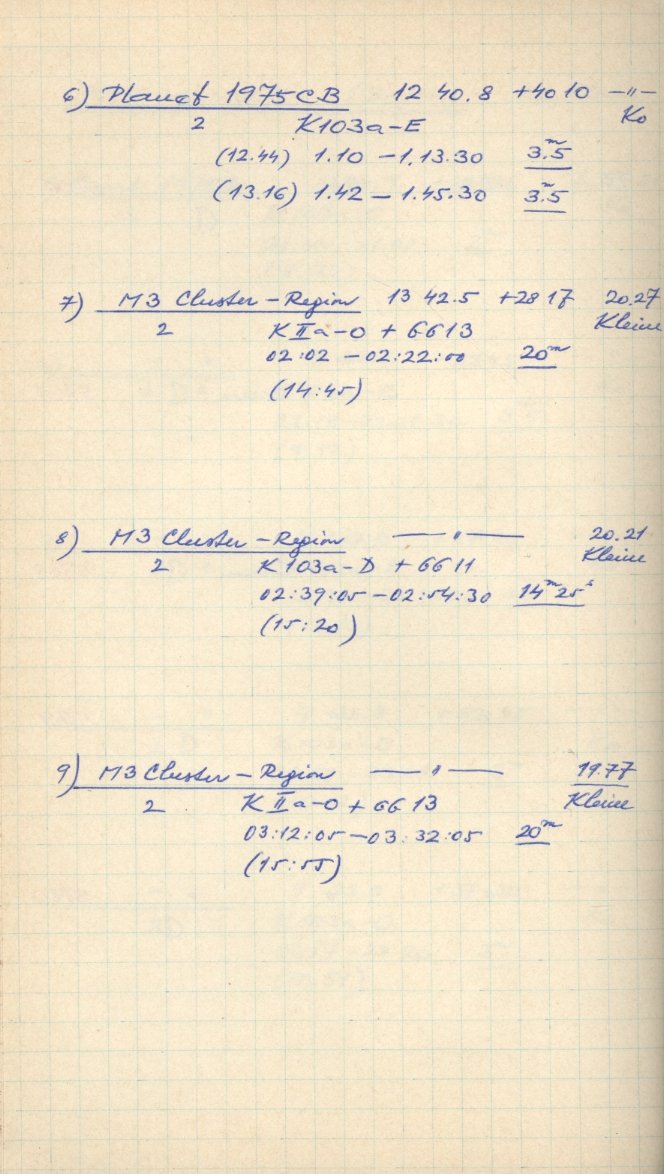 6) Planet 1975CB 12 40.8 +40 10 —"—
2 K103a-E Ko
(12.44) 1.10 - 1.13.30 3.ᵐ5
(13.16) 1.42 - 1.45.30 3.ᵐ5
7) M3 Cluster - Region 13 42.5 +28 17 20.27
2 K IIa-O + GG13 Kleine
02:02 - 02:22:00 20ᵐ
(14:45)
8) M3 Cluster - Region —"— 20.21
2 K103a-D + GG11 Kleine
02:39:05 - 02:54:30 14ᵐ25ˢ
(15:20)
9) M3 Cluster - Region —"— 19.77
2 K IIa-O + GG13 Kleine
03:12:05 - 03:32:05 20ᵐ
(15:55)